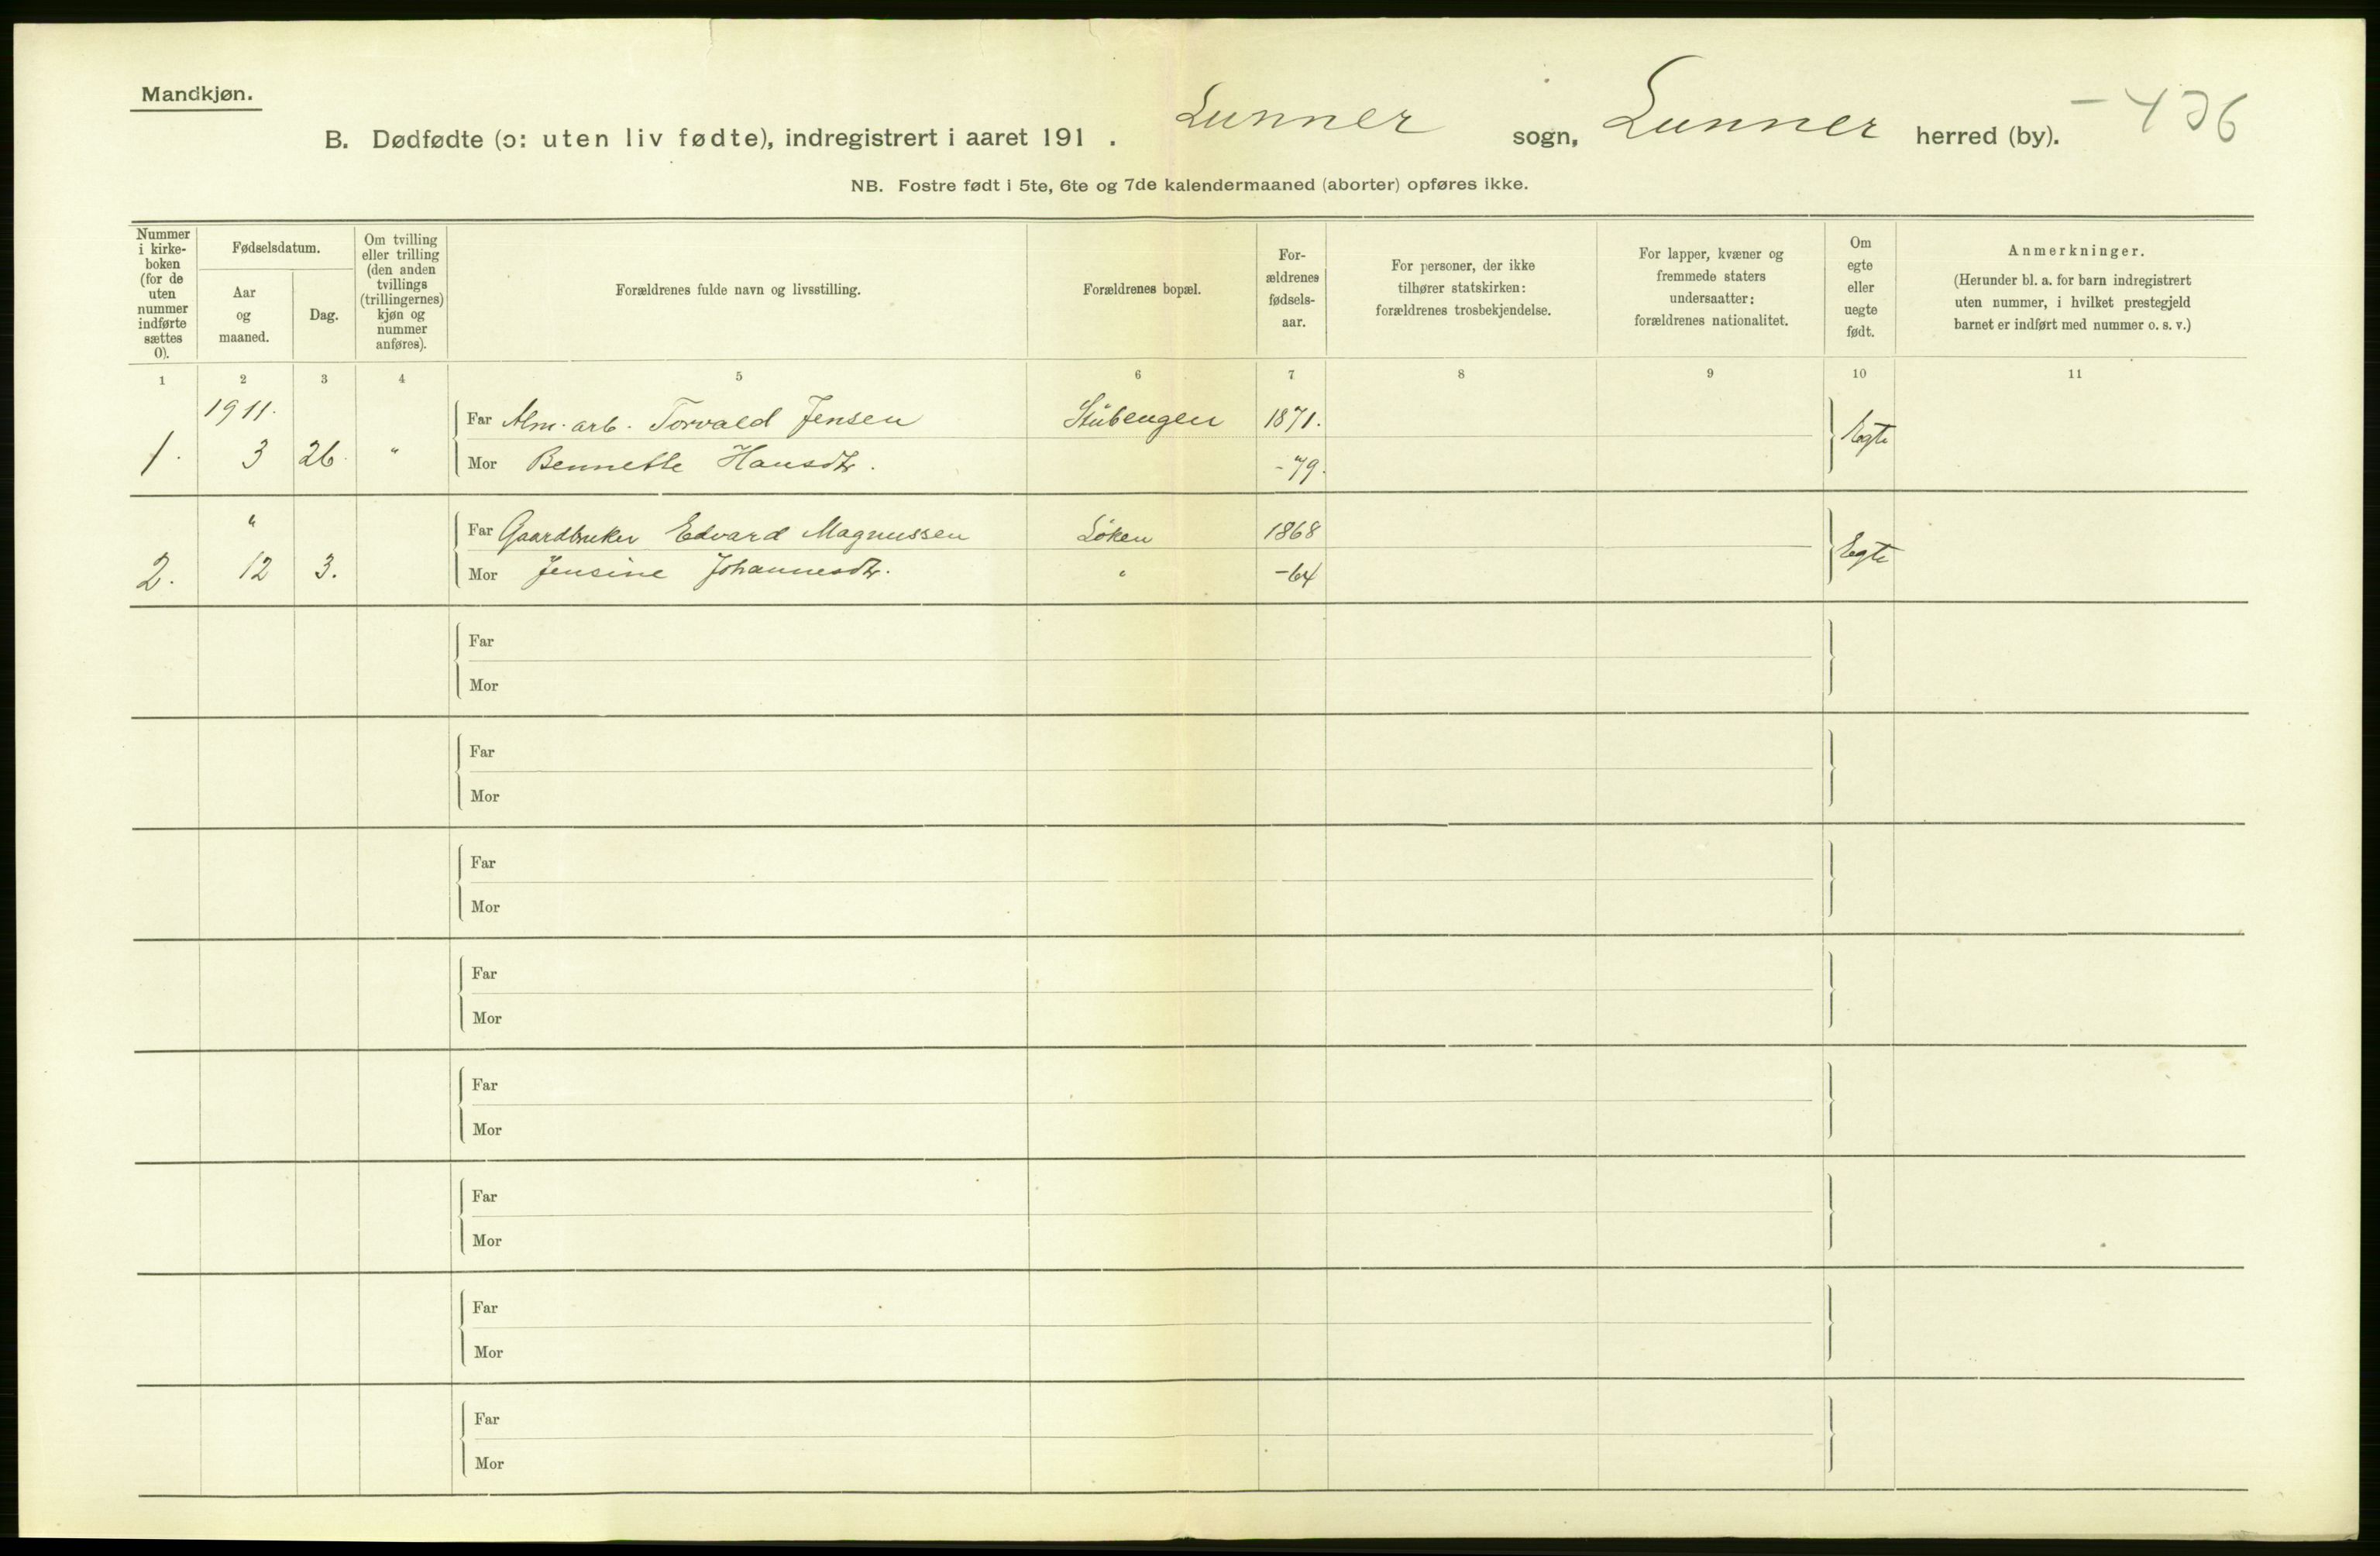 Mandkjøn.
B. Dødfødte (ɔ: uten liv fødte), indregistrert i aaret 191 . Lunner sogn, Lunner herred (by). - 436
NB. Fostre født i 5te, 6te og 7de kalendermaaned (aborter) opføres ikke.
Nummer i kirke-boken (for de uten nummer indførte sættes 0).
Fødselsdatum.
Aar og maaned.
Dag.
Om tvilling eller trilling (den anden tvillings (trillingernes) kjøn og nummer anføres).
Forældrenes fulde navn og livsstilling.
Forældrenes bopæl.
For-ældrenes fødsels-aar.
For personer, der ikke tilhører statskirken: forældrenes trosbekjendelse.
For lapper, kvæner og fremmede staters undersaatter: forældrenes nationalitet.
Om egte eller uegte født.
Anmerkninger.
(Herunder bl. a. for barn indregistrert uten nummer, i hvilket prestegjeld barnet er indført med nummer o. s. v.)
1 2 3 4 5 6 7 8 9 10 11
1911.
Far Alm. arb. Torvald Jensen Stubengen 1871. Egte
1. 3 26. " Mor Bennette Hansdtr. - 79.
" Far Gaardbruker Edvard Magnussen Løken 1868 Egte
2. 12 3. Mor Jensine Johannesdtr. " - 64
Far
Mor
Far
Mor
Far
Mor
Far
Mor
Far
Mor
Far
Mor
Far
Mor
Far
Mor